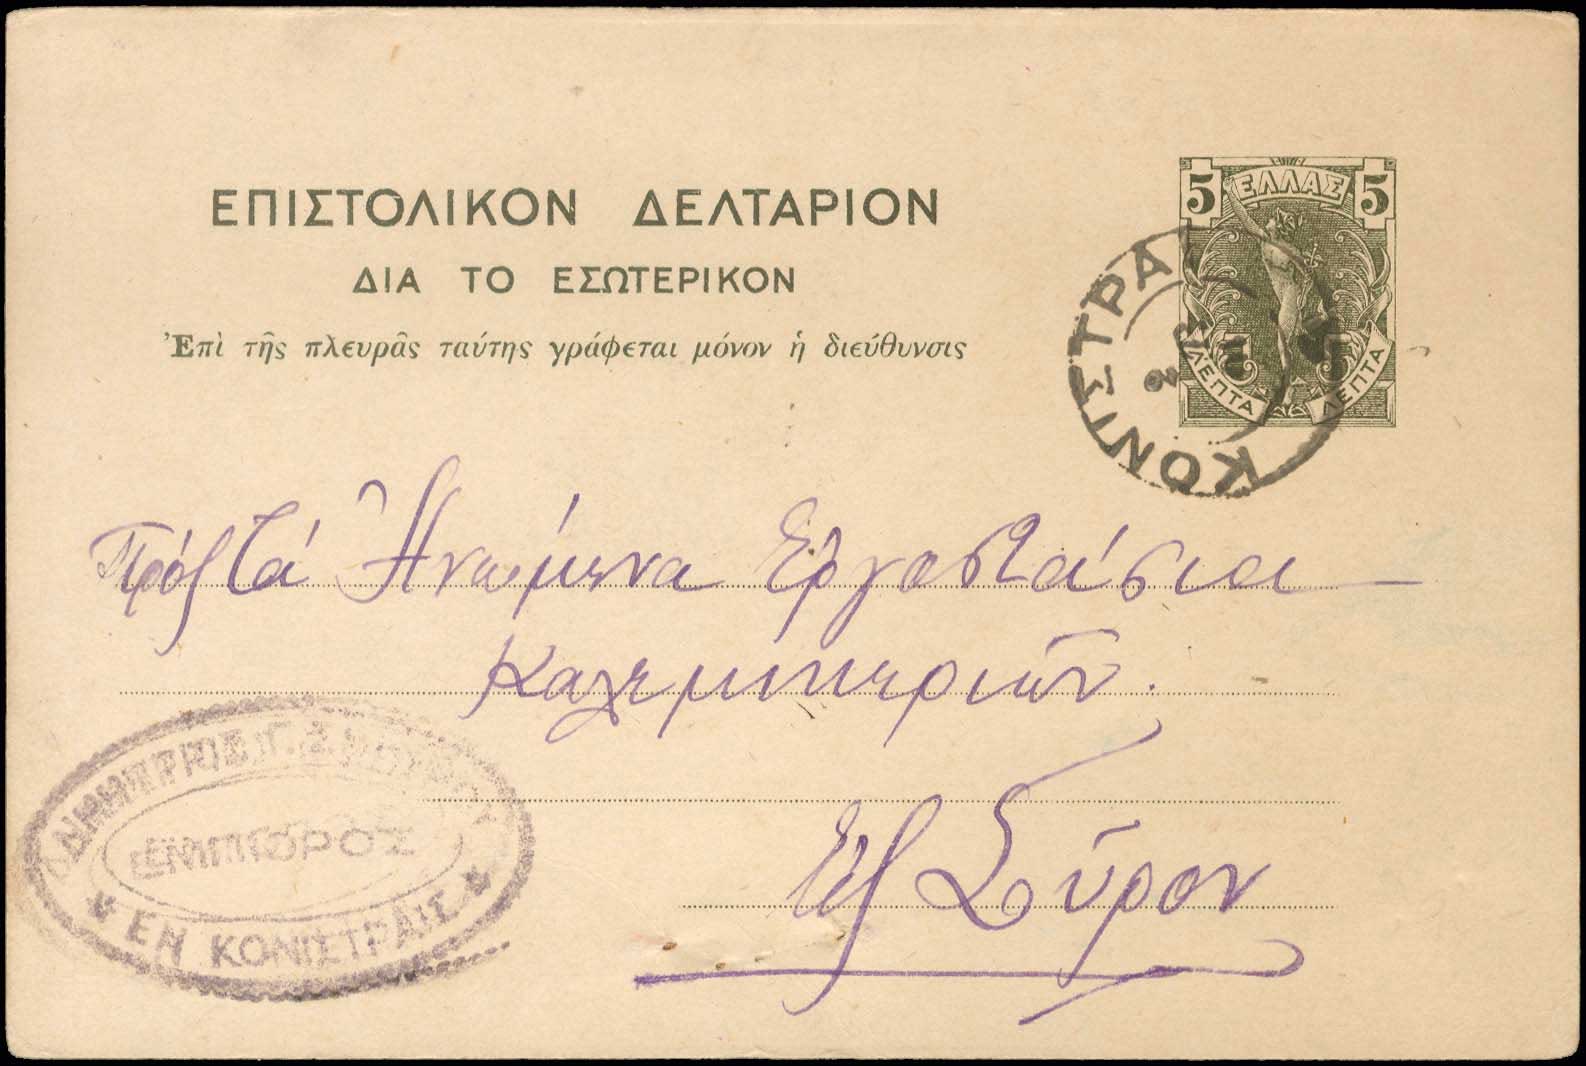 ΕΠΙΣΤΟΛΙΚΟΝ ΔΕΛΤΑΡΙΟΝ
ΔΙΑ ΤΟ ΕΣΩΤΕΡΙΚΟΝ
Ἐπὶ τῆς πλευρᾶς ταύτης γράφεται μόνον ἡ διεύθυνσις
5 ΕΛΛΑΣ 5
ΛΕΠΤΑ ΛΕΠΤΑ
ΚΟΝΙΣΤΡΑΙ
Πρός τά Ἡνωμενα Εργοστάσια
Καλεμικεριών.
Εἰς Σῦρον
ΔΗΜΗΤΡΙΟΣ Γ.
ΕΜΠΟΡΟΣ
ΕΝ ΚΟΝΙΣΤΡΑΙΣ